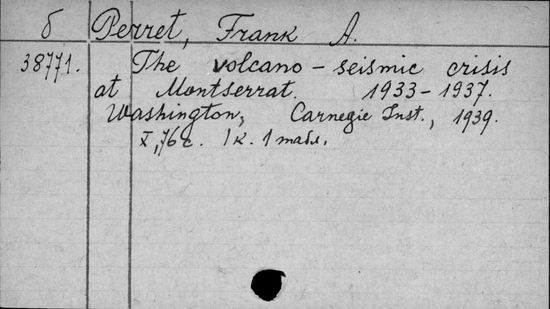 б Perret, Frank A.
38771. The volcano-seismic crisis
at Montserrat. 1933-1937.
Washington, Carnegie Inst., 1939.
X, 76 с. 1 к. 1 табл.